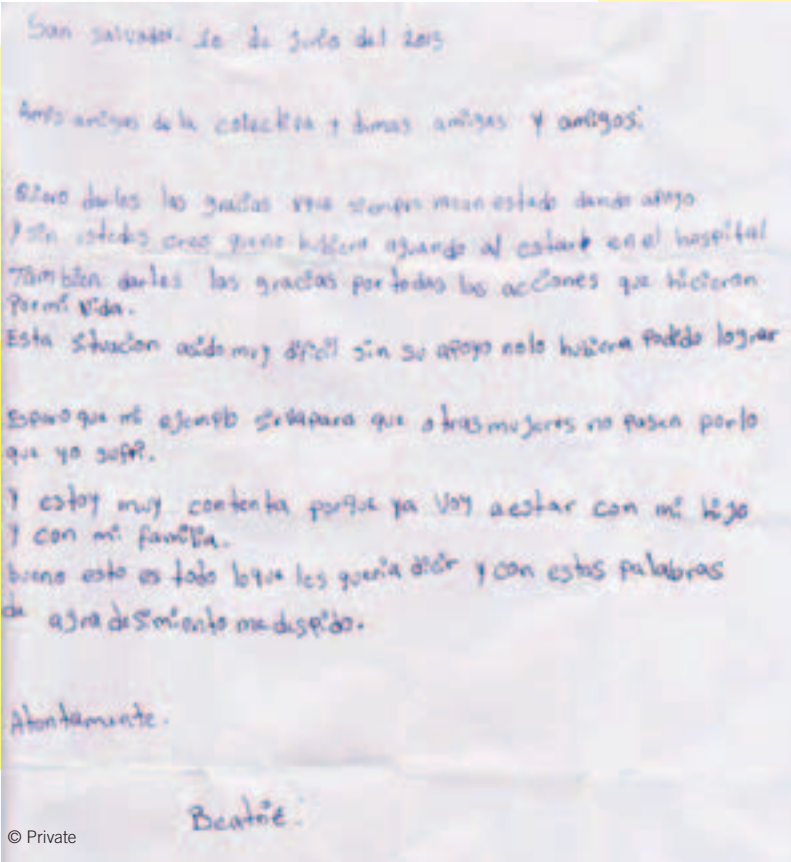 San salvador. 10 de Julio del 2013
Amis amigas de la colectiva y demas amigas y amigos:
darles las gracias siempre mean estado dando apoyo
y sin ustedes creo queno hubiera aguando al estar en el hospital
Tambien darles las gracias por todas las acciones que hicieron
Pormi vida.
Esta situacion asido muy dificil sin su apoyo nolo hubiera Podido lograr
Espero que mi ejemplo sirvapara que otras mujeres no pasen porlo
que yo sufri.
Y estoy muy contenta porque ya Voy aestar con mi hijo
Y con mi familia.
bueno esto es todo loque les queria dicir y con estas palabras
de agradesimiento medespido.
Atentamente.
Beatriz.
© Private